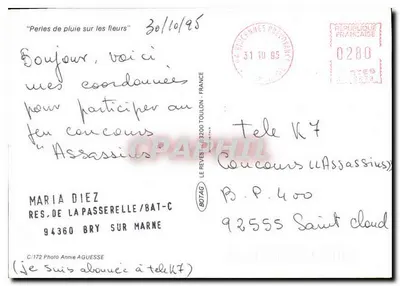 "Perles de pluie sur les fleurs"
30/10/95
Bonjour, voici
mes coordonnées
pour participer au
jeu concours
"Assassins"
MARIA DIEZ
RES. DE LA PASSERELLE/BAT-C
94360 BRY SUR MARNE
C/172 Photo Annie AGUESSE
(je suis abonnée à télé K7)
BOTAG
TOULON - FRANCE
31 10 95
REPUBLIQUE
FRANCAISE
0280
Tele K7
Concours "Assassins"
B.P. 400
92555 Saint Cloud